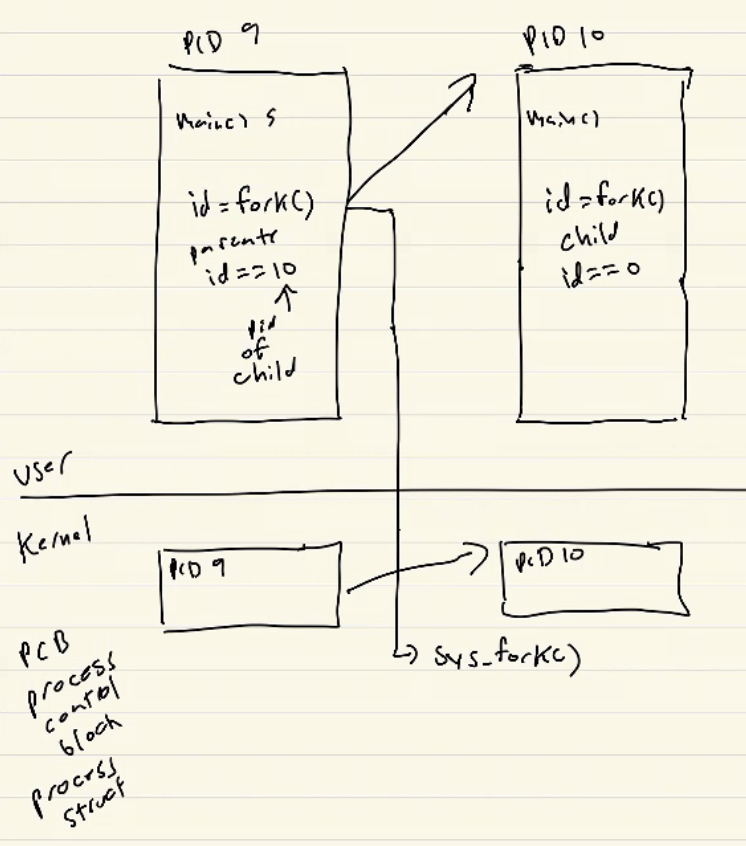 PID 9
main() {
id=fork()
parent
id==10
↑
pid
of
child
PID 10
main()
id=fork()
child
id==0
user
Kernel
PID 9
PID 10
sys_fork()
PCB
process
control
block
process
struct